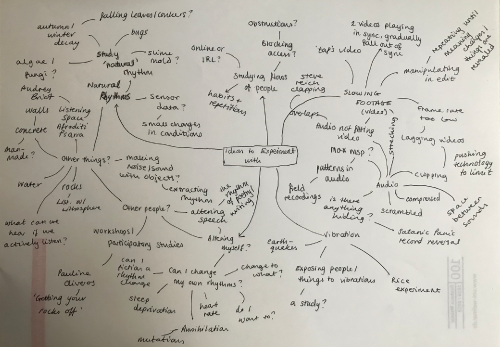 falling leaves/conkers?
autumn/
winter
decay
bugs
Study
'natural'
rhythm
slime
mold?
algae/
fungi?
Natural
Rhythms
Sensor
data?
small changes
in conditions
Audrey
Briot
Walls
Listening
Space
Afroditi
Psarra
Concrete
man-
made?
Other things?
water
rocks
making
noise/sound
with objects?
extracting
rhythm
what can we
hear if we
actively listen?
Other people?
workshops/
participatory studies
Pauline
Oliveros
'Getting your
rocks off'
altering
speech
the
rhythm
of poetry/
writing
Altering
myself?
Can I change
my own rhythms?
can I
fiction a
rhythm
change
sleep
deprivation
heart
rate
do I
want to?
change to
what?
Annihilation
mutations
Ideas to Experiment
with
Online or
IRL?
Studying flows
of people
habits +
repetitions
obstructions?
Blocking
access?
steve
reich
clapping
2 videos playing
in sync, gradually
fall out of
sync
'taps' video
SLOWING
FOOTAGE
(video)
manipulating
in edit
repeating until
meaning
changes/
things are
revealed
frame rate
too low
Lagging videos
pushing
technology
to limit
overlays
Audio not fitting
video
stretching
max msp?
patterns in
audio
Audio
cupping
compressed
scrambled
space
between
sounds
Satanic Panic
record reversal
is there
anything
hiding?
field
recordings
vibration
earth-
quakes
exposing people/
things to vibrations
a study?
Rice
experiment